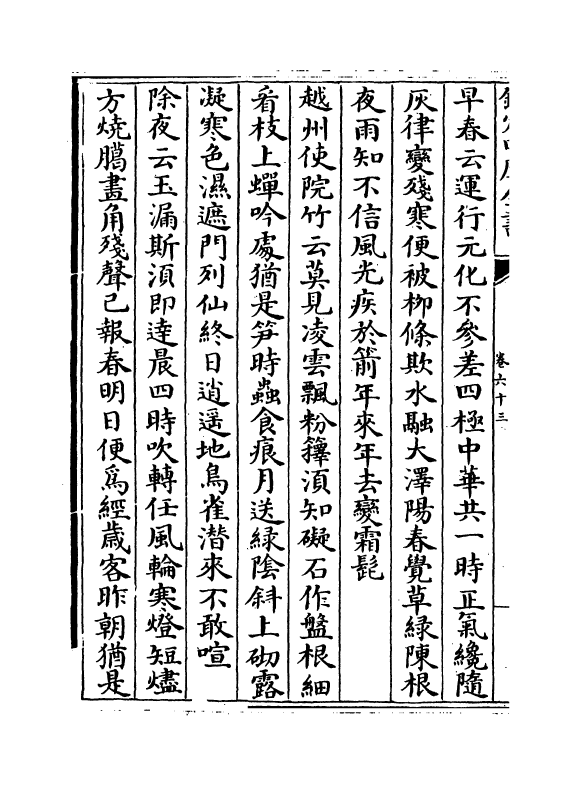 欽定四庫全書
卷六十三
早春云運行元化不參差四極中華共一時正氣纔隨
灰律變殘寒便被柳條欺水融大澤陽春覺草綠陳根
夜雨知不信風光疾於箭年來年去變霜髭
越州使院竹云莫見凌雲飄粉籜湏知礙石作盤根細
看枝上蟬吟處猶是笋時蟲食痕月送緑隂斜上砌露
凝寒色濕遮門列仙終日逍遥地鳥雀潜來不敢喧
除夜云玉漏斯湏即達晨四時吹轉任風輪寒燈短燼
方燒臈畫角殘聲已報春明日便爲經歲客昨朝猶是